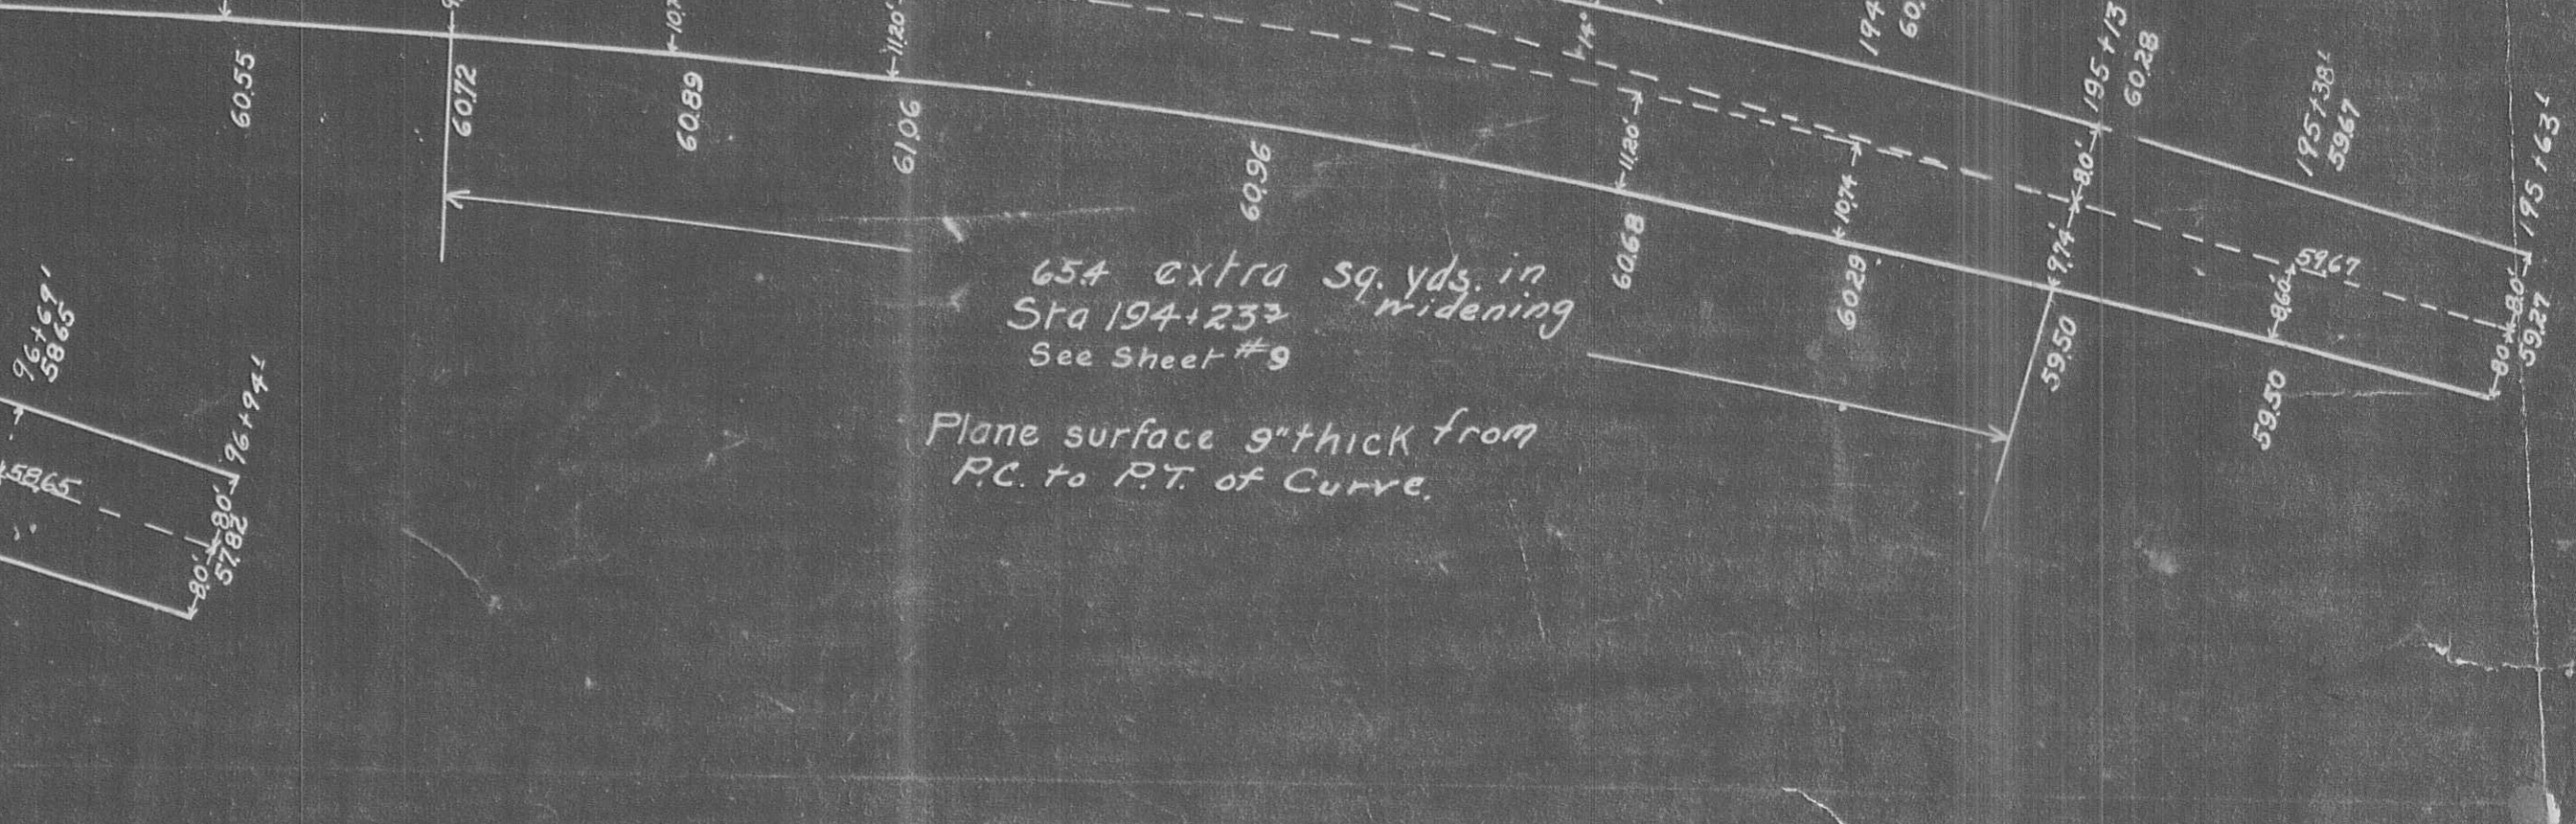 60.55
60.72
10.7
60.89
11.20'
61.06
60.96
14°
11.20'
60.68
10.74
60.29
194
60.
195+13
60.28
8.0'
9.74'
59.50
195+38¹
59.67
59.67
8.60'
59.50
195+63¹
8.0'
8.0'
59.27
65.4 extra sq. yds. in
widening
Sta 194+23²
See Sheet #9
Plane surface 9" thick from
P.C. to P.T. of Curve.
96+69¹
58.65
96+94¹
58.65
8.0'
8.0'
57.82